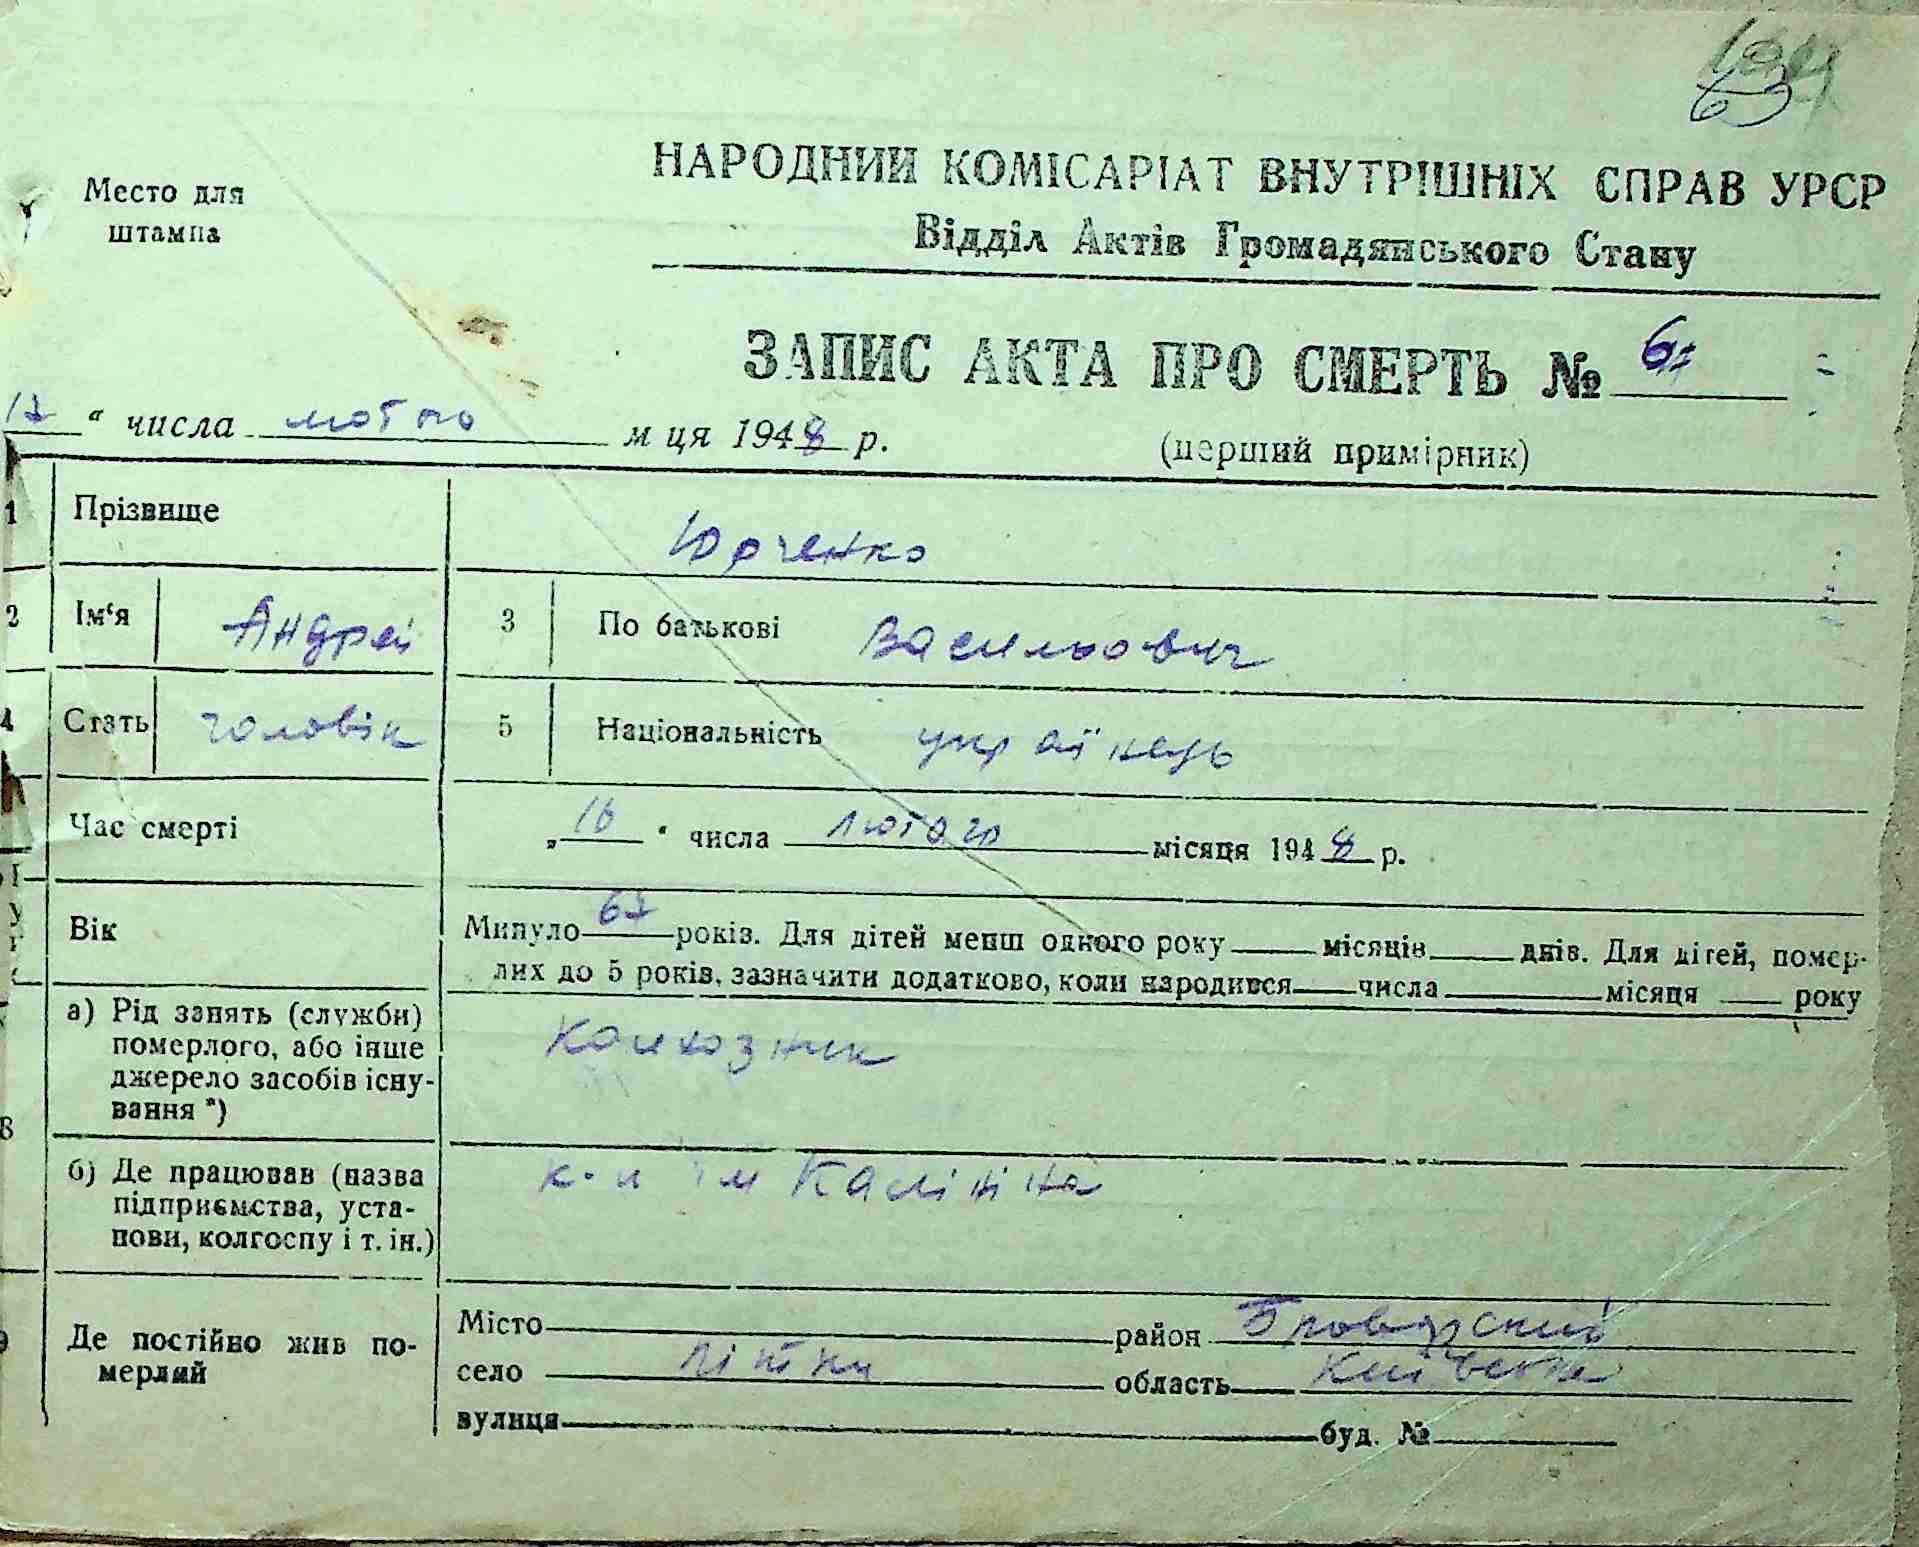 63
НАРОДНИЙ КОМІСАРІАТ ВНУТРІШНІХ СПРАВ УРСР
Место для штампа
Відділ Актів Громадянського Стану
ЗАПИС АКТА ПРО СМЕРТЬ № 6
17 “ числа лютого м ця 1948 р. (перший примірник)
1 Прізвище Юрченко
2 Ім‘я Андрей 3 По батькові Васильович
4 Стать чоловік 5 Національність українець
Час смерті „16“ числа лютого місяця 1948 р.
Вік Минуло 67 років. Для дітей менш одного року місяців днів. Для дітей, помер-
лих до 5 років, зазначити додатково, коли народився числа місяця року
а) Рід занять (служби) Колхозник
померлого, або інше
джерело засобів існу-
вання *)
8
б) Де працював (назва к-п їм Калініна
підприємства, уста-
нови, колгоспу і т. ін.)
9 Де постійно жив по- Місто район Броварський
мерлий село Літки область Київська
вулиця буд. №